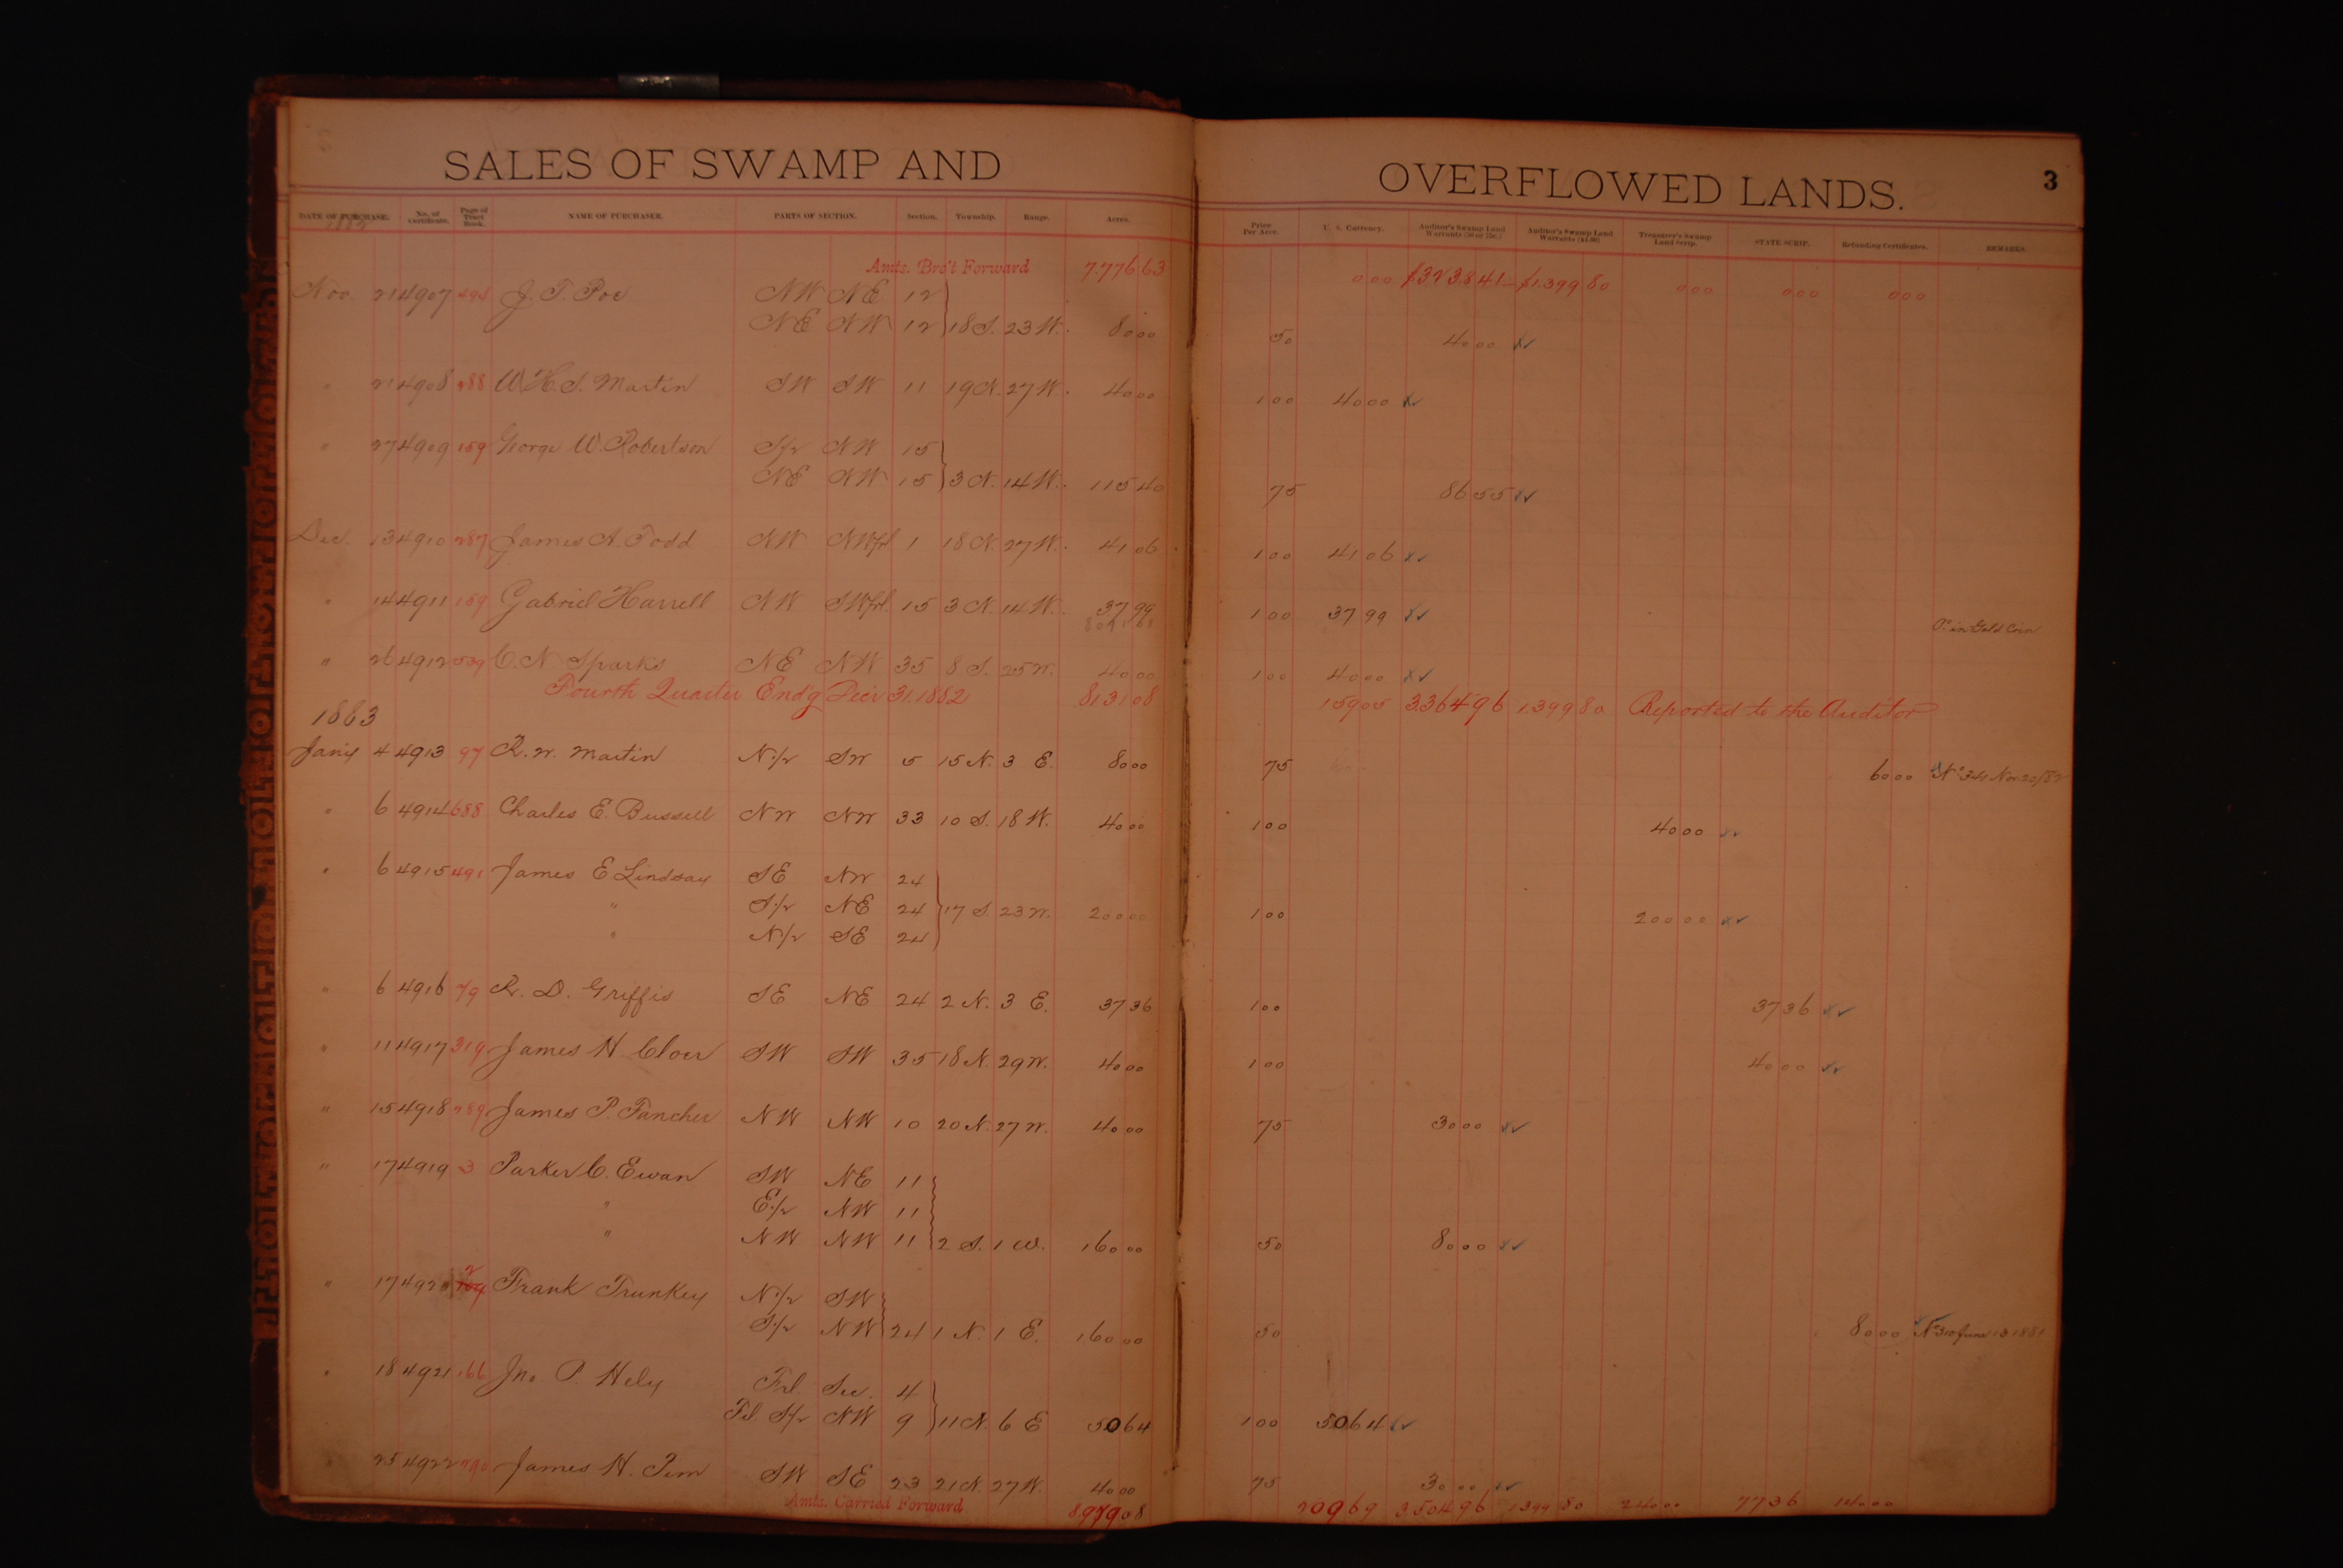 SALES OF SWAMP AND OVERFLOWED LANDS. 3
DATE OF PURCHASE. No. of Certificate. Page of Tract Book. NAME OF PURCHASER. PARTS OF SECTION. Section. Township. Range. Acres. Price Per Acre. U. S. Currency. Auditor's Swamp Land Warrants (50 or 75c.) Auditor's Swamp Land Warrants ($1.00) Treasurer's Swamp Land Scrip. STATE SCRIP. Refunding Certificates. REMARKS.
1882
Amts. Bro't Forward 7.776 63 0 00 $3238.41 $1.399 80 000 000 000
Nov. 21 4907 494 J. T. Poe NW NE 12
NE NW 12 18 S. 23 W. 80 00 50 40 00
" 21 4908 288 W. H. S. Martin SW SW 11 19 N. 27 W. 40 00 1 00 40 00
" 27 4909 159 George W. Robertson S/2 NW 15
NE NW 15 3 N. 14 W. 115 40 75 86 55
Dec. 13 4910 287 James A. Todd NW NWfrl 1 18 N. 27 W. 41 06 1 00 41 06
" 14 4911 159 Gabriel Harrell NW SWfrl 15 3 N. 14 W. 37 99 1 00 37 99 in Gold Coin
" 26 4912 539 C. N. Sparks NE NW 35 8 S. 25 W. 40 00 1 00 40 00
Fourth Quarter End'g Dec'r 31. 1882 8131 08 159 05 3364 96 1399 80 Reported to the Auditor
1883
Jan'y 4 4913 97 R. W. Martin N/2 SW 5 15 N. 3 E. 80 00 75 60 00 No 341 Nov 20/82
" 6 4914 688 Charles E. Bussell NW NW 33 10 S. 18 W. 40 00 1 00 40 00
" 6 4915 491 James E Lindsay SE NW 24
" S/2 NE 24 17 S. 23 W. 200 00 1 00 200 00
" N/2 SE 24
" 6 4916 79 R. D. Griffis SE NE 24 2 N. 3 E. 37 36 1 00 37 36
" 11 4917 319 James H. Cloer SW SW 35 18 N. 29 W. 40 00 1 00 40 00
" 15 4918 289 James P. Fancher NW NW 10 20 N. 27 W. 40 00 75 30 00
" 17 4919 3 Parker C. Ewan SW NE 11
" E/2 NW 11
" NW NW 11 2 S. 1 W. 160 00 50 80 00
" 17 4920 2 Frank Trunkey N/2 SW
S/2 NW 24 1 N. 1 E. 160 00 50 80 00 No 310 June 13 1881
" 18 4921 166 Jno. P. Hely Frl. Sec. 4
Frl. S/2 NW 9 11 N. 6 E 50 64 1 00 50 64
25 4922 290 James H. Pem SW SE 23 21 N. 27 W. 40 00 75 30 00
Amts. Carried Forward 8979 08 209 69 3504 96 1399 80 240 00 77 36 140 00